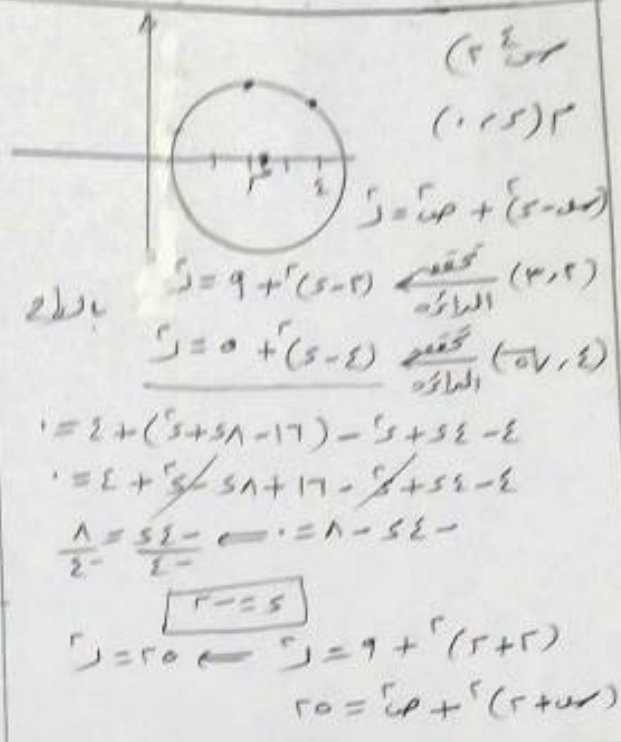 ص ع ٢)
م(د ، ٠)
(س-د)٢ + ص٢ = ر٢
(٢ ، ٣) تحقق الدائرة ⟸ (٢-د)٢ + ٩ = ر٢
(٤ ، √٥) تحقق الدائرة ⟸ (٤-د)٢ + ٥ = ر٢ بالطرح
٤ - ٤د + د٢ - (١٦ - ٨د + د٢) + ٤ = ٠
٤ - ٤د + د٢ - ١٦ + ٨د - د٢ + ٤ = ٠
-٤د - ٨ = ٠ ⟸ -٤د/-٤ = ٨/-٤
د = -٢
(٢+٢)٢ + ٩ = ر٢ ⟸ ٢٥ = ر٢
(س+٢)٢ + ص٢ = ٢٥
م
٤